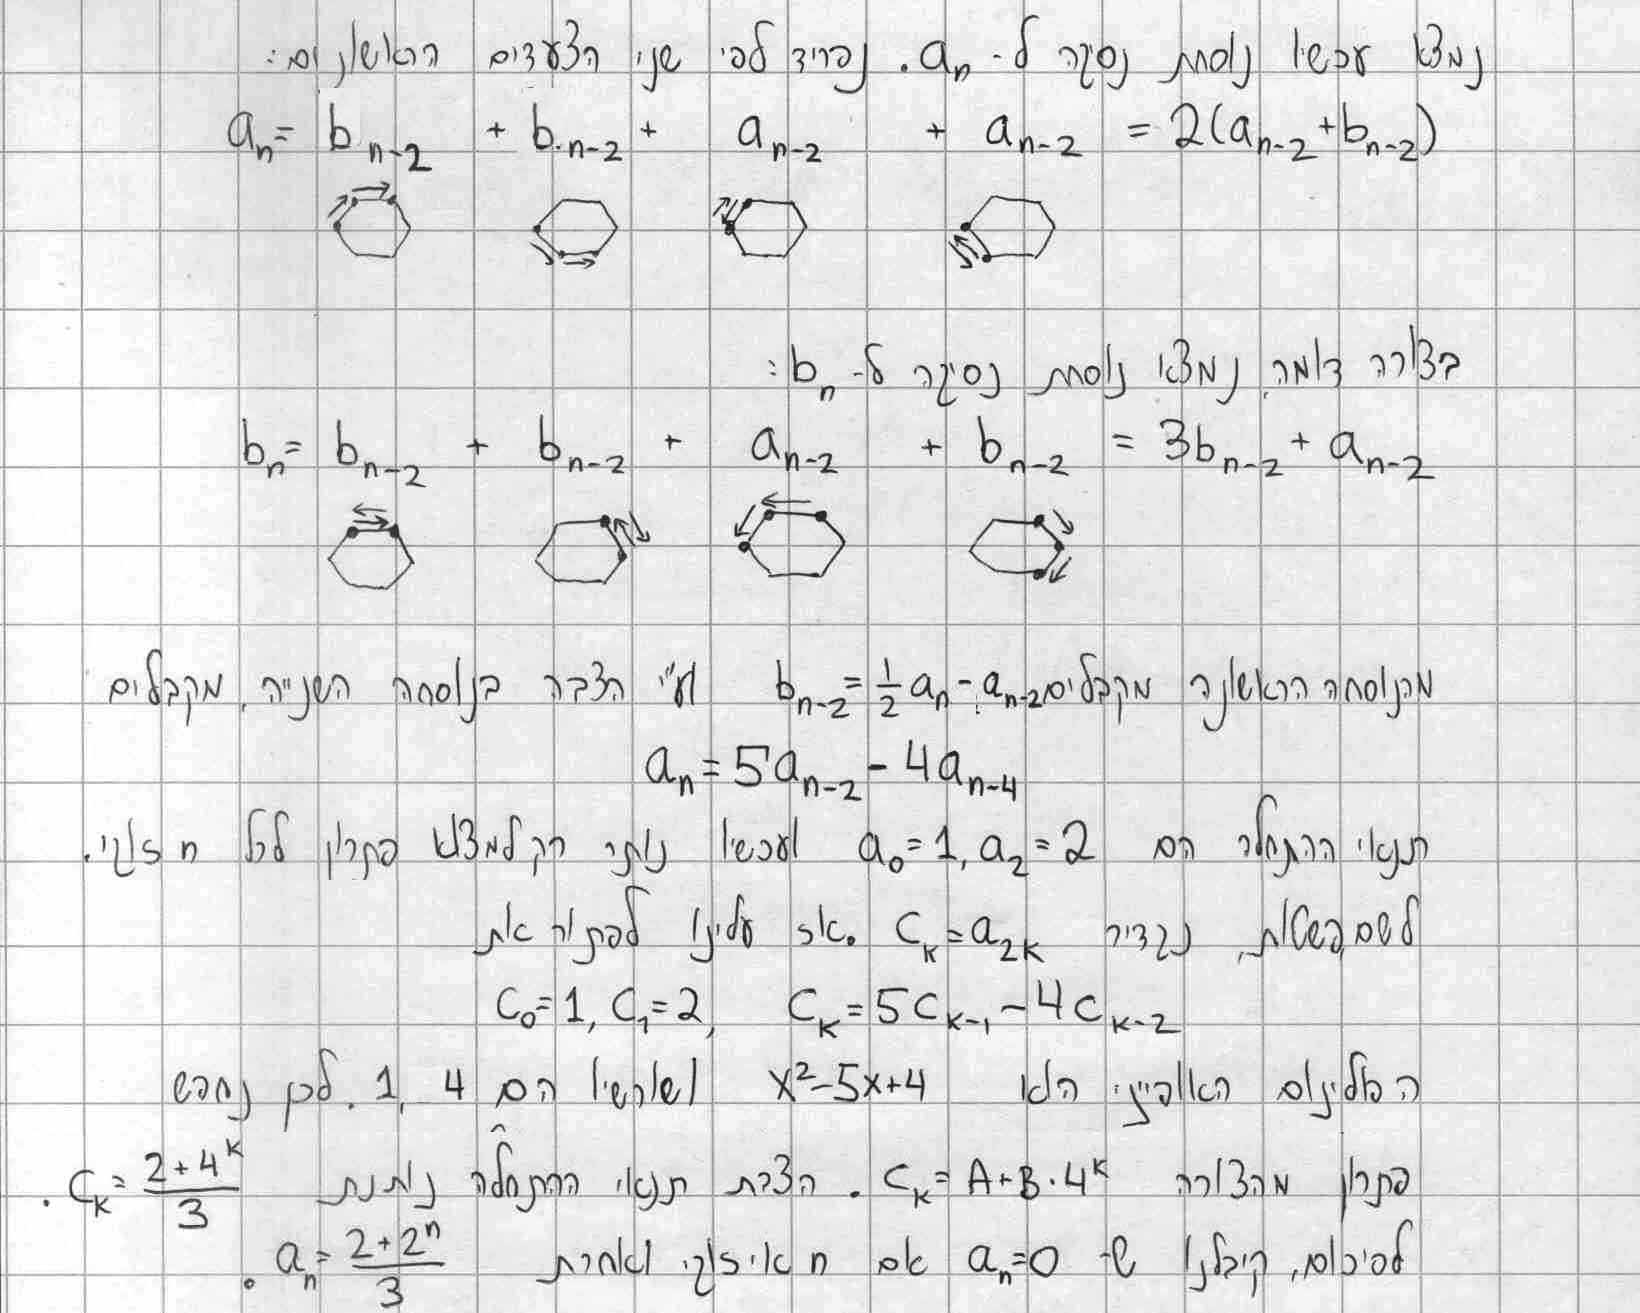 נמצא עכשיו נוסחת נסיגה ל- aₙ. נפריד לפי שני הצעדים הראשונים:
aₙ = bₙ₋₂ + bₙ₋₂ + aₙ₋₂ + aₙ₋₂ = 2(aₙ₋₂ + bₙ₋₂)
בצורה דומה, נמצא נוסחת נסיגה ל- bₙ:
bₙ = bₙ₋₂ + bₙ₋₂ + aₙ₋₂ + bₙ₋₂ = 3bₙ₋₂ + aₙ₋₂
מהנוסחה הראשונה מקבלים bₙ₋₂ = ½aₙ - aₙ₋₂ וע"י הצבה בנוסחה השנייה, מקבלים
aₙ = 5aₙ₋₂ - 4aₙ₋₄
תנאי ההתחלה הם a₀=1, a₂=2 ועכשיו נותר רק למצוא פתרון לכל n זוגי.
לשם פשטות, נגדיר Cₖ = a₂ₖ. אז עלינו לפתור את
C₀=1, C₁=2, Cₖ = 5Cₖ₋₁ - 4Cₖ₋₂
הפולינום האופייני הוא x²-5x+4 ושורשיו הם 1, 4. לכן נחפש
פתרון מהצורה Cₖ = A+B·4ᵏ. הצבת תנאי ההתחלה נותנת Cₖ = (2+4ᵏ)/3.
לסיכום, קיבלנו ש- aₙ=0 אם n אי זוגי ואחרת aₙ = (2+2ⁿ)/3.